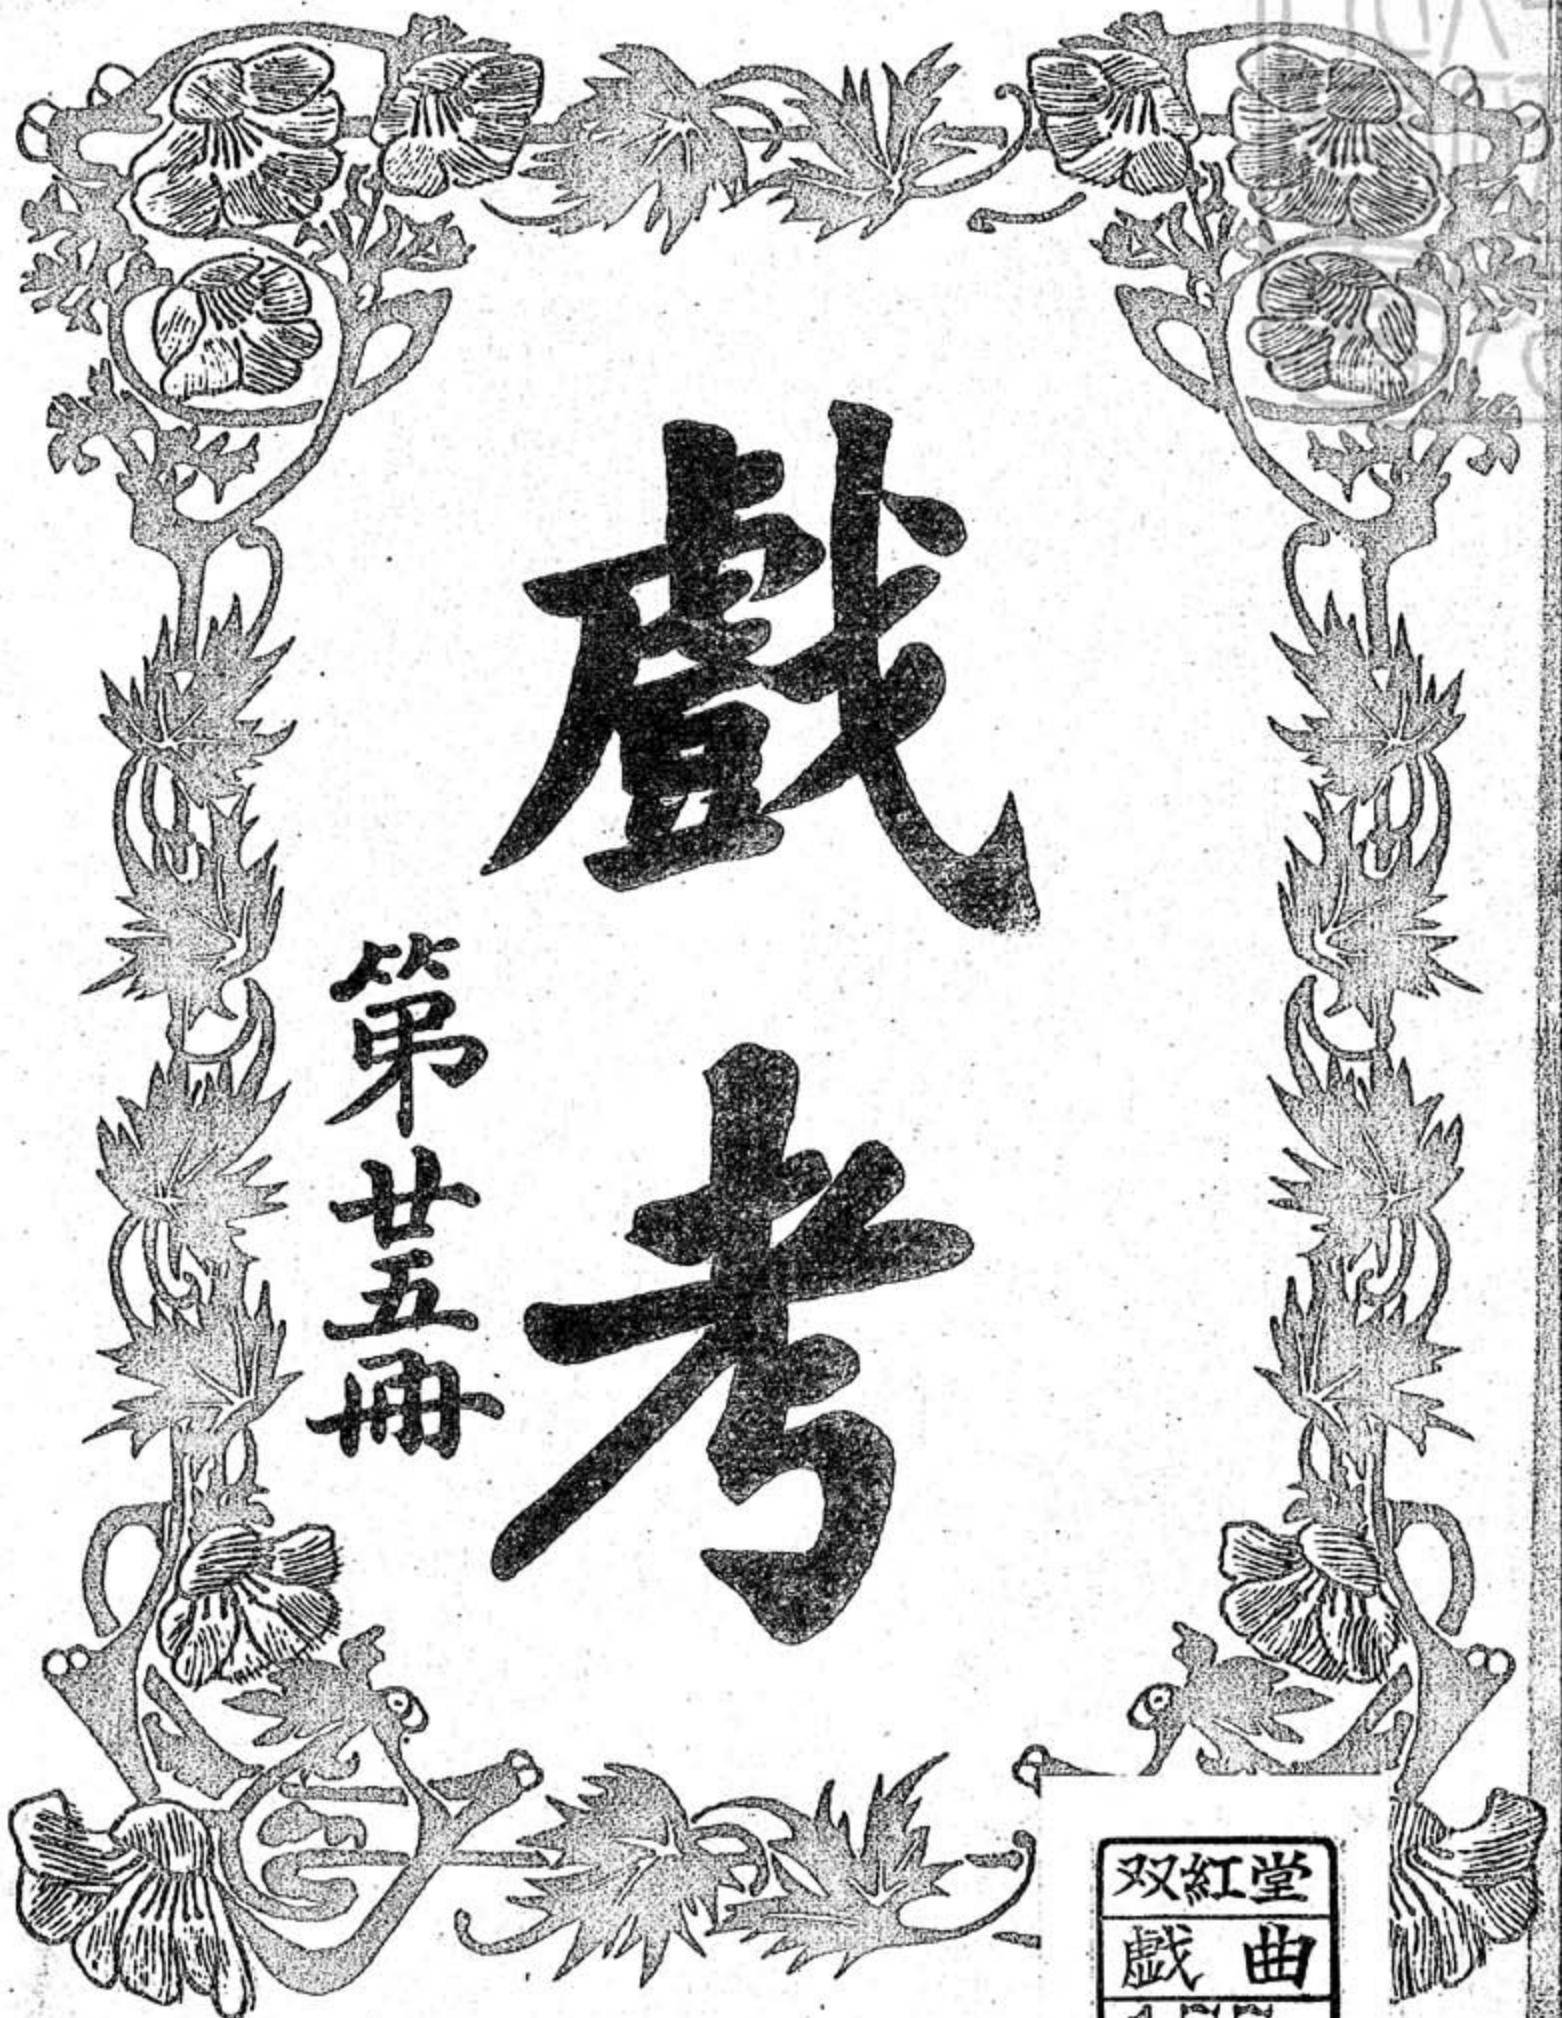 戲考
第廿五冊
双紅堂
戯曲